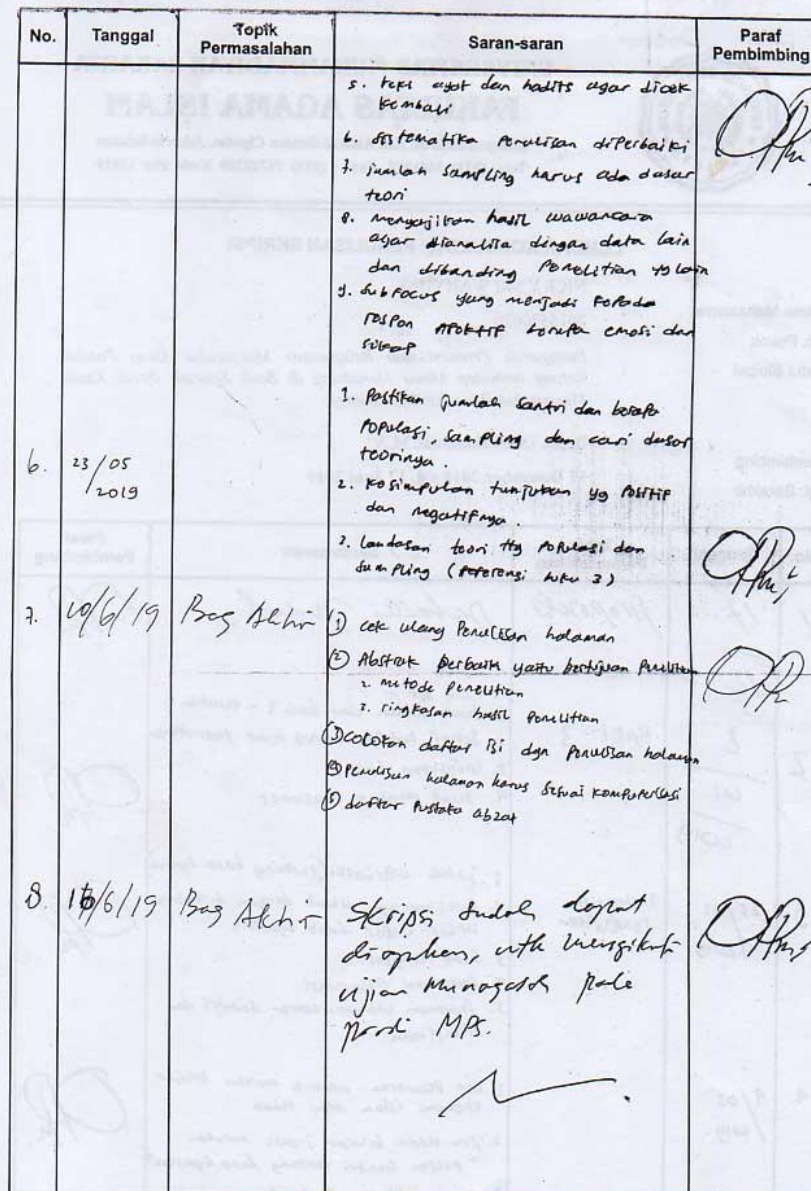 No. Tanggal Topik Permasalahan Saran-saran Paraf Pembimbing
5. teks ayat dan hadits agar dicek
kembali
6. sistematika penulisan diperbaiki
7. jumlah sampling harus ada dasar
teori
8. menyajikan hasil wawancara
agar dianalisa dengan data lain
dan dibanding penelitian yg lain
9. Subfocus yang menjadi
respon afektif berupa emosi dan
sikap
1. Pastikan jumlah santri dan berapa
populasi, sampling dan cari dasar
teorinya
6. 23/05
/2019
2. kesimpulan tunjukan yg positif
dan negatifnya
3. landasan teori ttg populasi dan
sampling (referensi buku 3)
7. 10/6/19 Bag Akhir ① cek ulang Penulisan halaman
② Abstrak berbaris yaitu bertujuan Penelitian
2. metode penelitian
3. ringkasan hasil penelitian
③ cocokan daftar isi dgn penulisan halaman
④ penulisan halaman harus sesuai komputerisasi
⑤ daftar pustaka abzat
8. 16/6/19 Bag Akhir Skripsi sudah dapat
diajukan, utk mengikuti
ujian Munaqosah pada
prodi MPS.